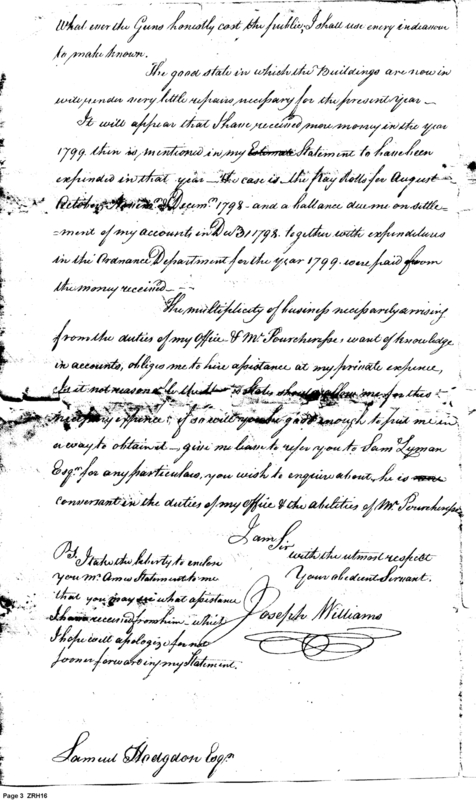 What ever the Guns honestly cost the public, I shall use every indeavour
to make known.
The good state in which the Buildings are now in
will render very little repairs, necessary for the present year —
It will appear that I have received more money in the year
1799. then is, mentioned in my Estimate Statement to have been
expended in that year — the case is, the Pay Rolls for August
October, Novem. & Decem. 1798 — and a ballance due me on settle
=ment of my accounts in Dec 31, 1798. together with expenditures
in the Ordnance Department for the year 1799. were paid from
the money received —
The multiplicity of business necessarily arrising
from the duties of my Office & Mr. want of knowledge
in accounts, obliges me to hire assistance at my private expence,
is it not reasonable that States should allow me for this
necessary expence, if so will you be good enough to put me in
a way to obtain it — give me leave to refer you to Saml. Lyman
Esqr. for any particulars, you wish to enquire about, he is
conversant in the duties of my Office & the abilities of Mr.
I am Sir
with the utmost respect
Your obedient Servant.
Joseph Williams
Ps. I take the liberty to enclose
you Mr. Ames Statement to me
that you may see what assistance
I have received from him — which
I hope will apologize for not
sooner forwarding my Statement.
Samuel Hodgdon Esqr.
Page 3 ZRH16